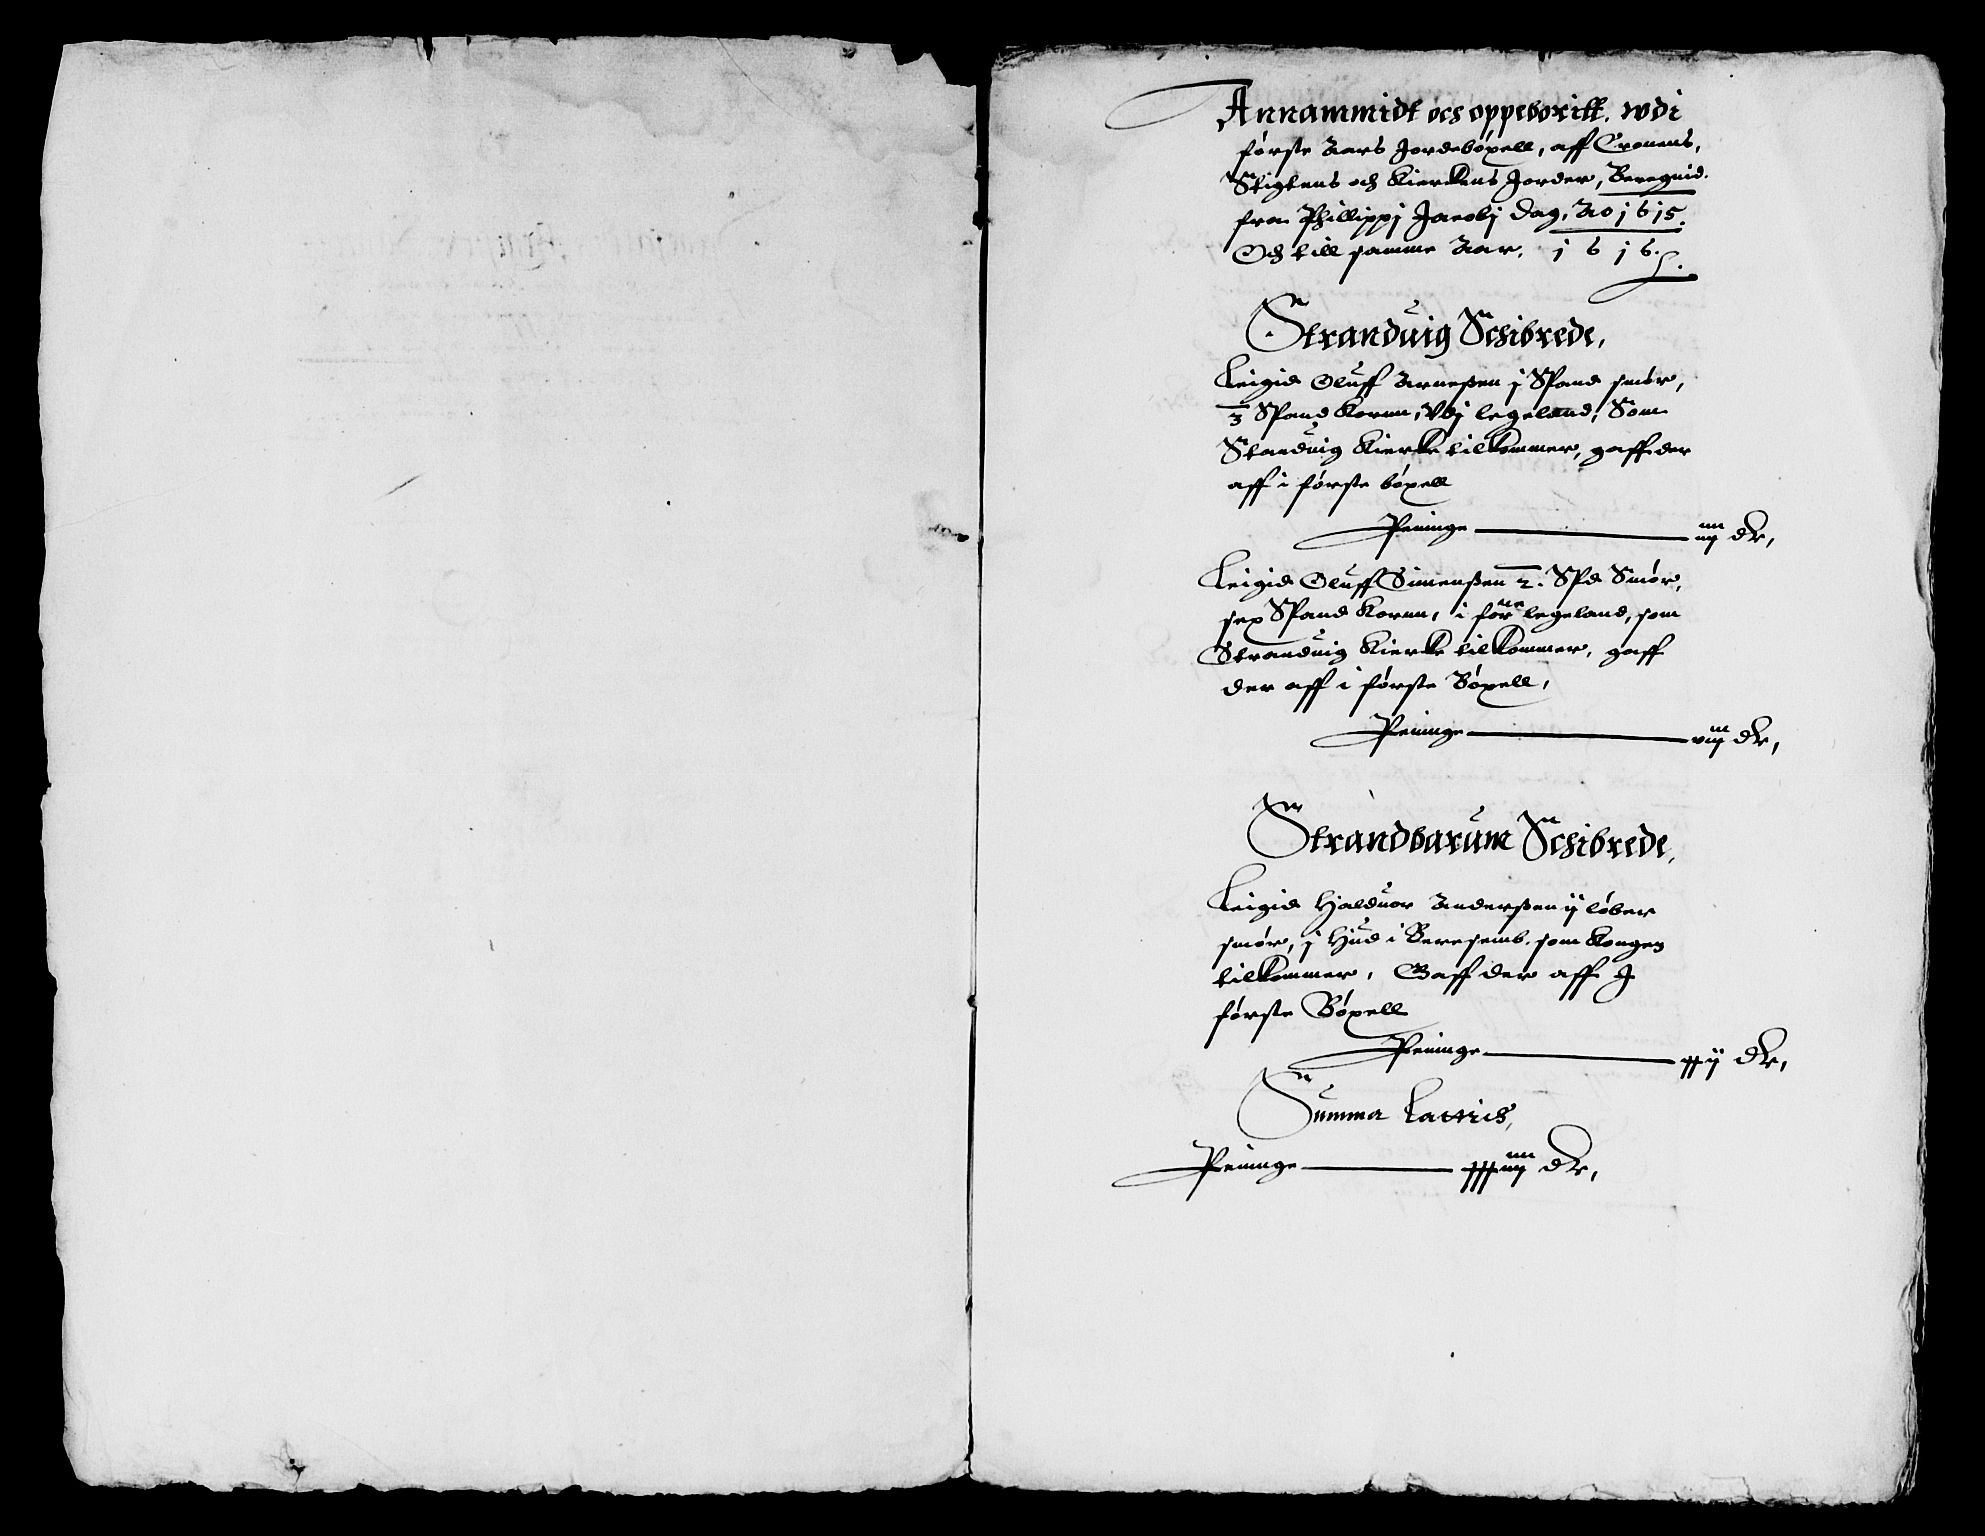 Annammidt och oppeboritt, wdi
første Aars Jordebøxell, aff Cronens,
Stigtens och Kierckens Jorder, Beregnid
fra Phillippj Jacobj dag, Ao 1615.
Och till samme Aar, 1616.
Stranduig Schibrede,
Leigid Oluff Arneßen j Spand smør,
3 Spand Kornn, Vdj legeland, Som
Standuig Kiercke tilkommer, gaff der
aff i første bøxell
Peninge — dr,
Leigid Oluff Simenßen 2. Spd Smør,
sex Spand Kornn, i forne legeland, som
Stranduig Kiercke tilkommer, gaff
der aff i første Bøxell,
Peninge — dr,
Strandbarum Schibrede,
Leigid Halduor Anderßen ij løber
smør, j Hud i som Kongen
tilkommer, Gaff der aff J
første Bøxell
Peninge — xxij dr,
Summa Lateris,
Peninge — dr,